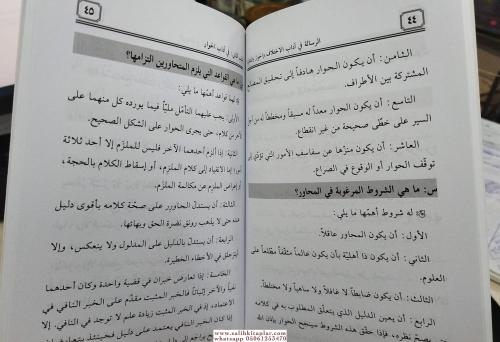 ٤٤
الرسالة في آداب الاختلاف والحوار
الثامن: أن يكون الحوار هادفاً إلى تحقيق المصالح
المشتركة بين الأطراف.
التاسع: أن يكون الحوار معداً له مسبقاً ومخططاً له من أجل
السير على خطى صحيحة من غير انقطاع.
العاشر: أن يكون منزهاً عن سفاسف الأمور التي تؤدي إلى
توقف الحوار أو الوقوع في الصراع.
س: ما هي الشروط المرغوبة في المحاور؟
له شروط أهمها ما يلي:
الأول: أن يكون المحاور عاقلاً.
الثاني: أن يكون ذا أهلية بأن يكون عالماً مثقفاً مطلعاً على
العلوم.
الثالث: أن يكون ضابطاً لا غافلاً ولا ساهياً ولا مختلطاً.
الرابع: أن يعين الدليل الذي يتعلق المطلوب به في كلامه
صح نظره، فإذا حقق هذه الشروط سينجح الحوار بإذن الله
٤٥
في آداب الحوار
هي القواعد التي يلزم المتحاورين التزامها؟
لهما قواعد أهمها ما يلي:
الأولى: يجب عليهما التأمل ملياً فيما يورده كل منهما على
الآخر من كلام، حتى يجرى الحوار على الشكل الصحيح.
الثانية: إذا ألزم أحدهما الآخر فليس للملزم إلا أحد ثلاثة
أمور: إما الانقياد إلى كلام الملزم، أو إسقاط الكلام بالحجة،
أو إعراض الملزم عن مكالمة الملزم.
الثالثة: أن يستدل المحاور على صحة كلامه بأقوى دليل
حتى لا يذهب رونق نضرة الحق وبهائها.
الرابعة: أن يستدل بالدليل على المدلول ولا ينعكس، وإلا
في الأخطاء الخطيرة.
الخامسة: إذا تعارض خبران في قضية واحدة وكان أحدهما
نفياً والآخر إثباتاً فالخبر المثبت مقدم على الخبر النافي في
الاعتماد؛ إذ في الخبر المثبت زيادة علم لا توجد في النافي، إلا
أن يكون الخبر النافي يعتمد على دليل فحينئذ
www.salihkitaplar.com
whatsapp 05061255470